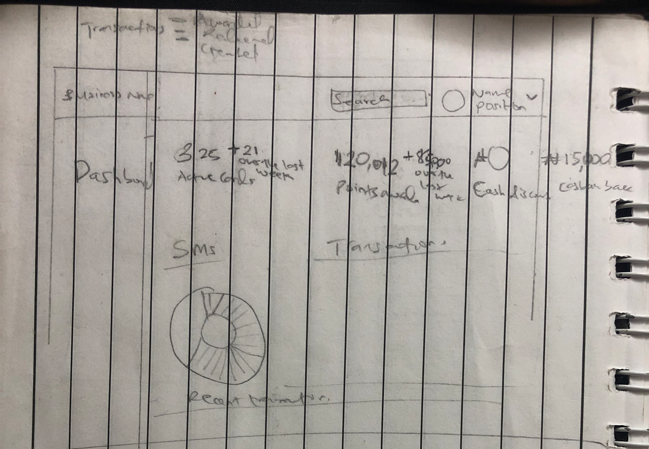 Transactions = Awarded
Redeemed
Created
Business Name
Search
Name
position
Dashboard
325 +21
over the last
week
Active Cards
120,012 +8
over the
last
week
Points award
₦0
Cash discount
₦15,000
cash back
SMS
Transactions
Recent